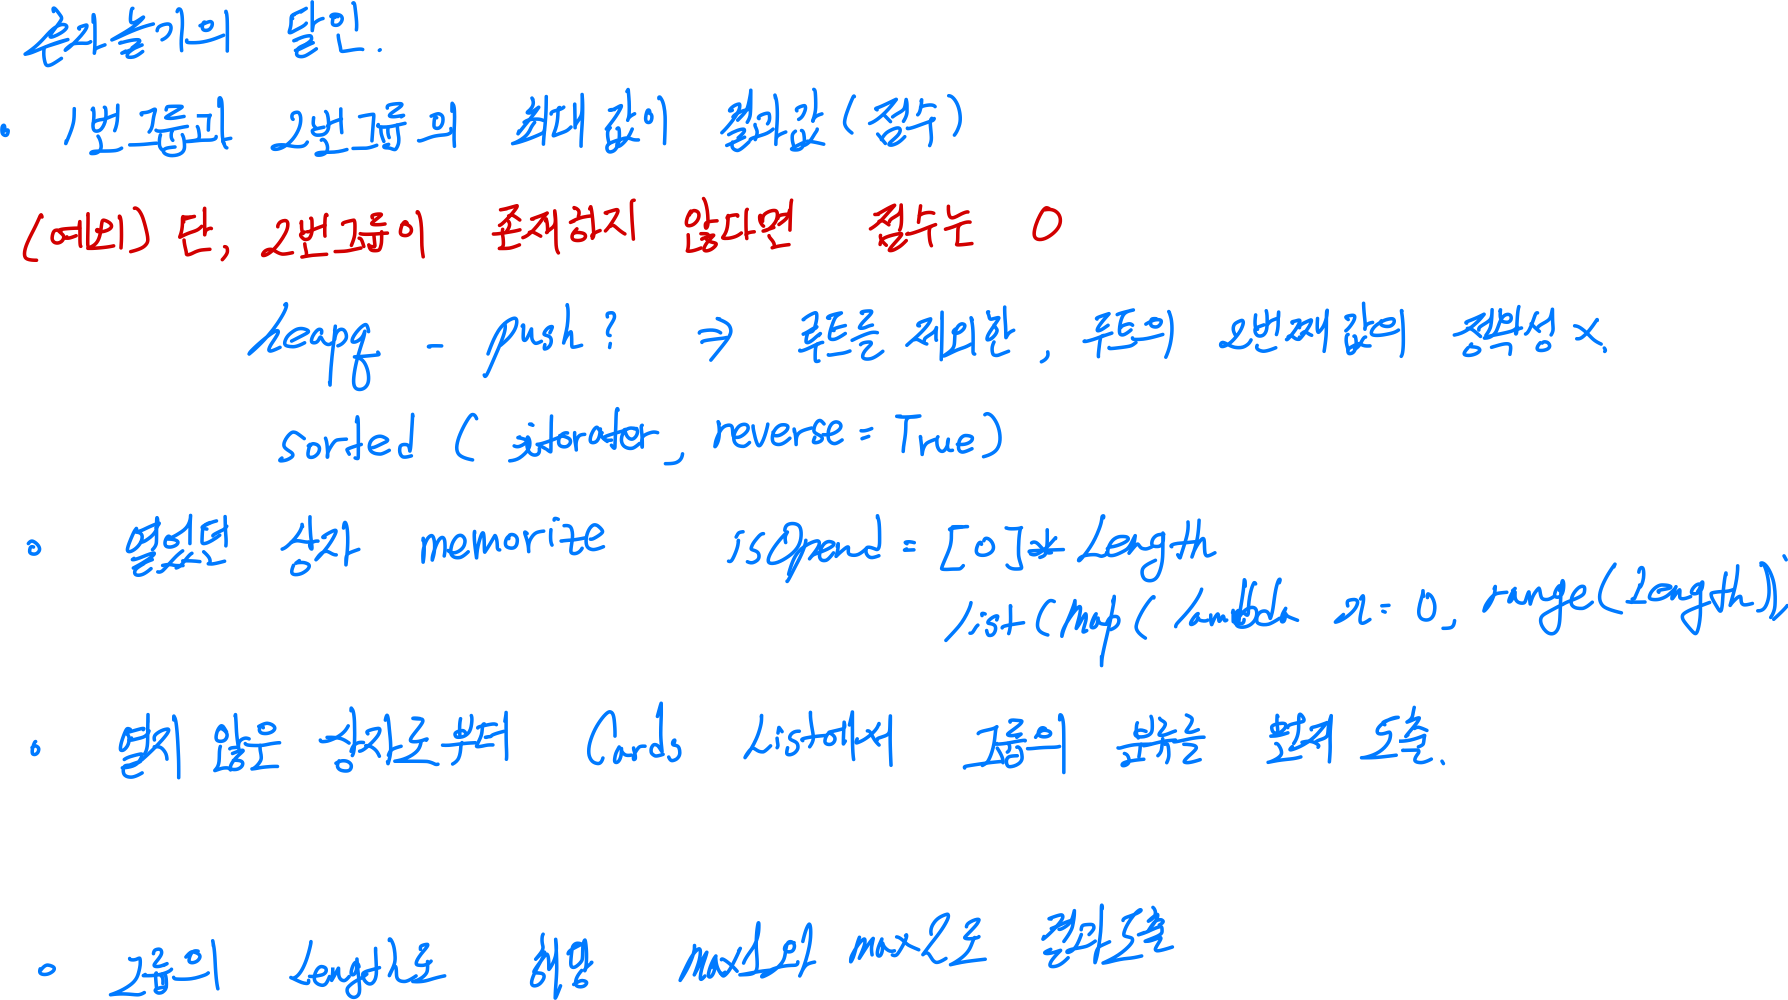 혼자놀기의 달인.
• 1번그룹과 2번그룹의 최대값이 결과값 (점수)
(예외) 단, 2번그룹이 존재하지 않다면 점수는 0
heapq - push? ⇒ 루트를 제외한, 루트의 2번째값의 정확성 x.
sorted ( iterator, reverse = True)
• 열었던 상자 memorize isOpend = [0]* Length
list(map( lambda x: 0, range(Length))
• 열지 않은 상자로부터 Cards List에서 그룹의 분류를 먼저 도출.
• 그룹의 Length로 해당 max1와 max2로 결과도출